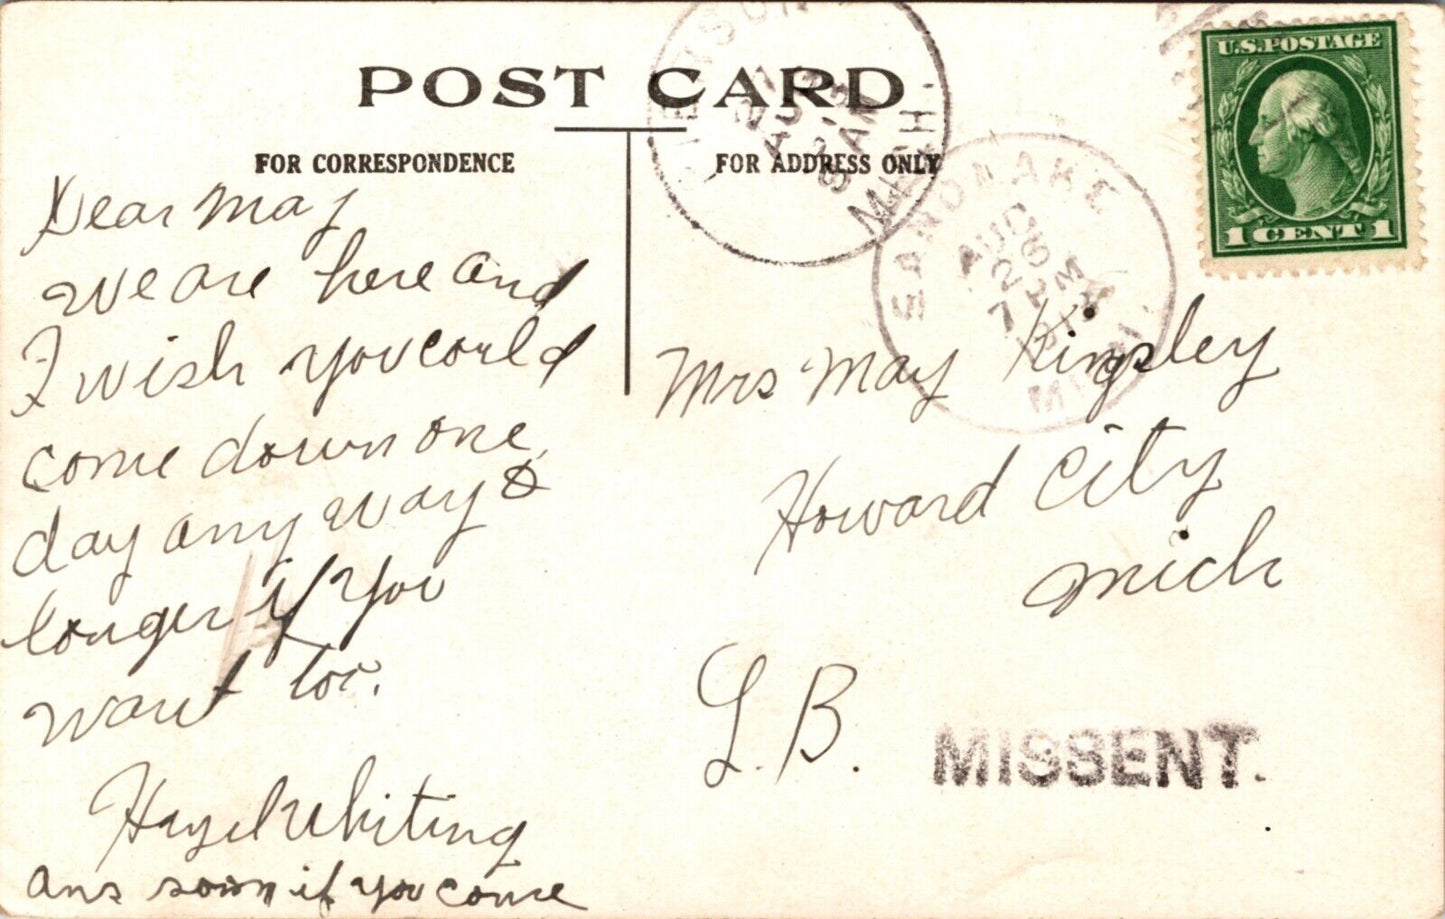 POST CARD
FOR CORRESPONDENCE
FOR ADDRESS ONLY
U.S. POSTAGE
1 CENT 1
AUG
AM
MICH.
SAND LAKE
AUG
26
7 PM
1913
MICH.
Dear May
We are here and
I wish you could
come down one
day any way &
longer if you
want to.
Hazel Whiting
ans soon if you come
Mrs May Kingsley
Howard City
Mich
L.B.
MISSENT.